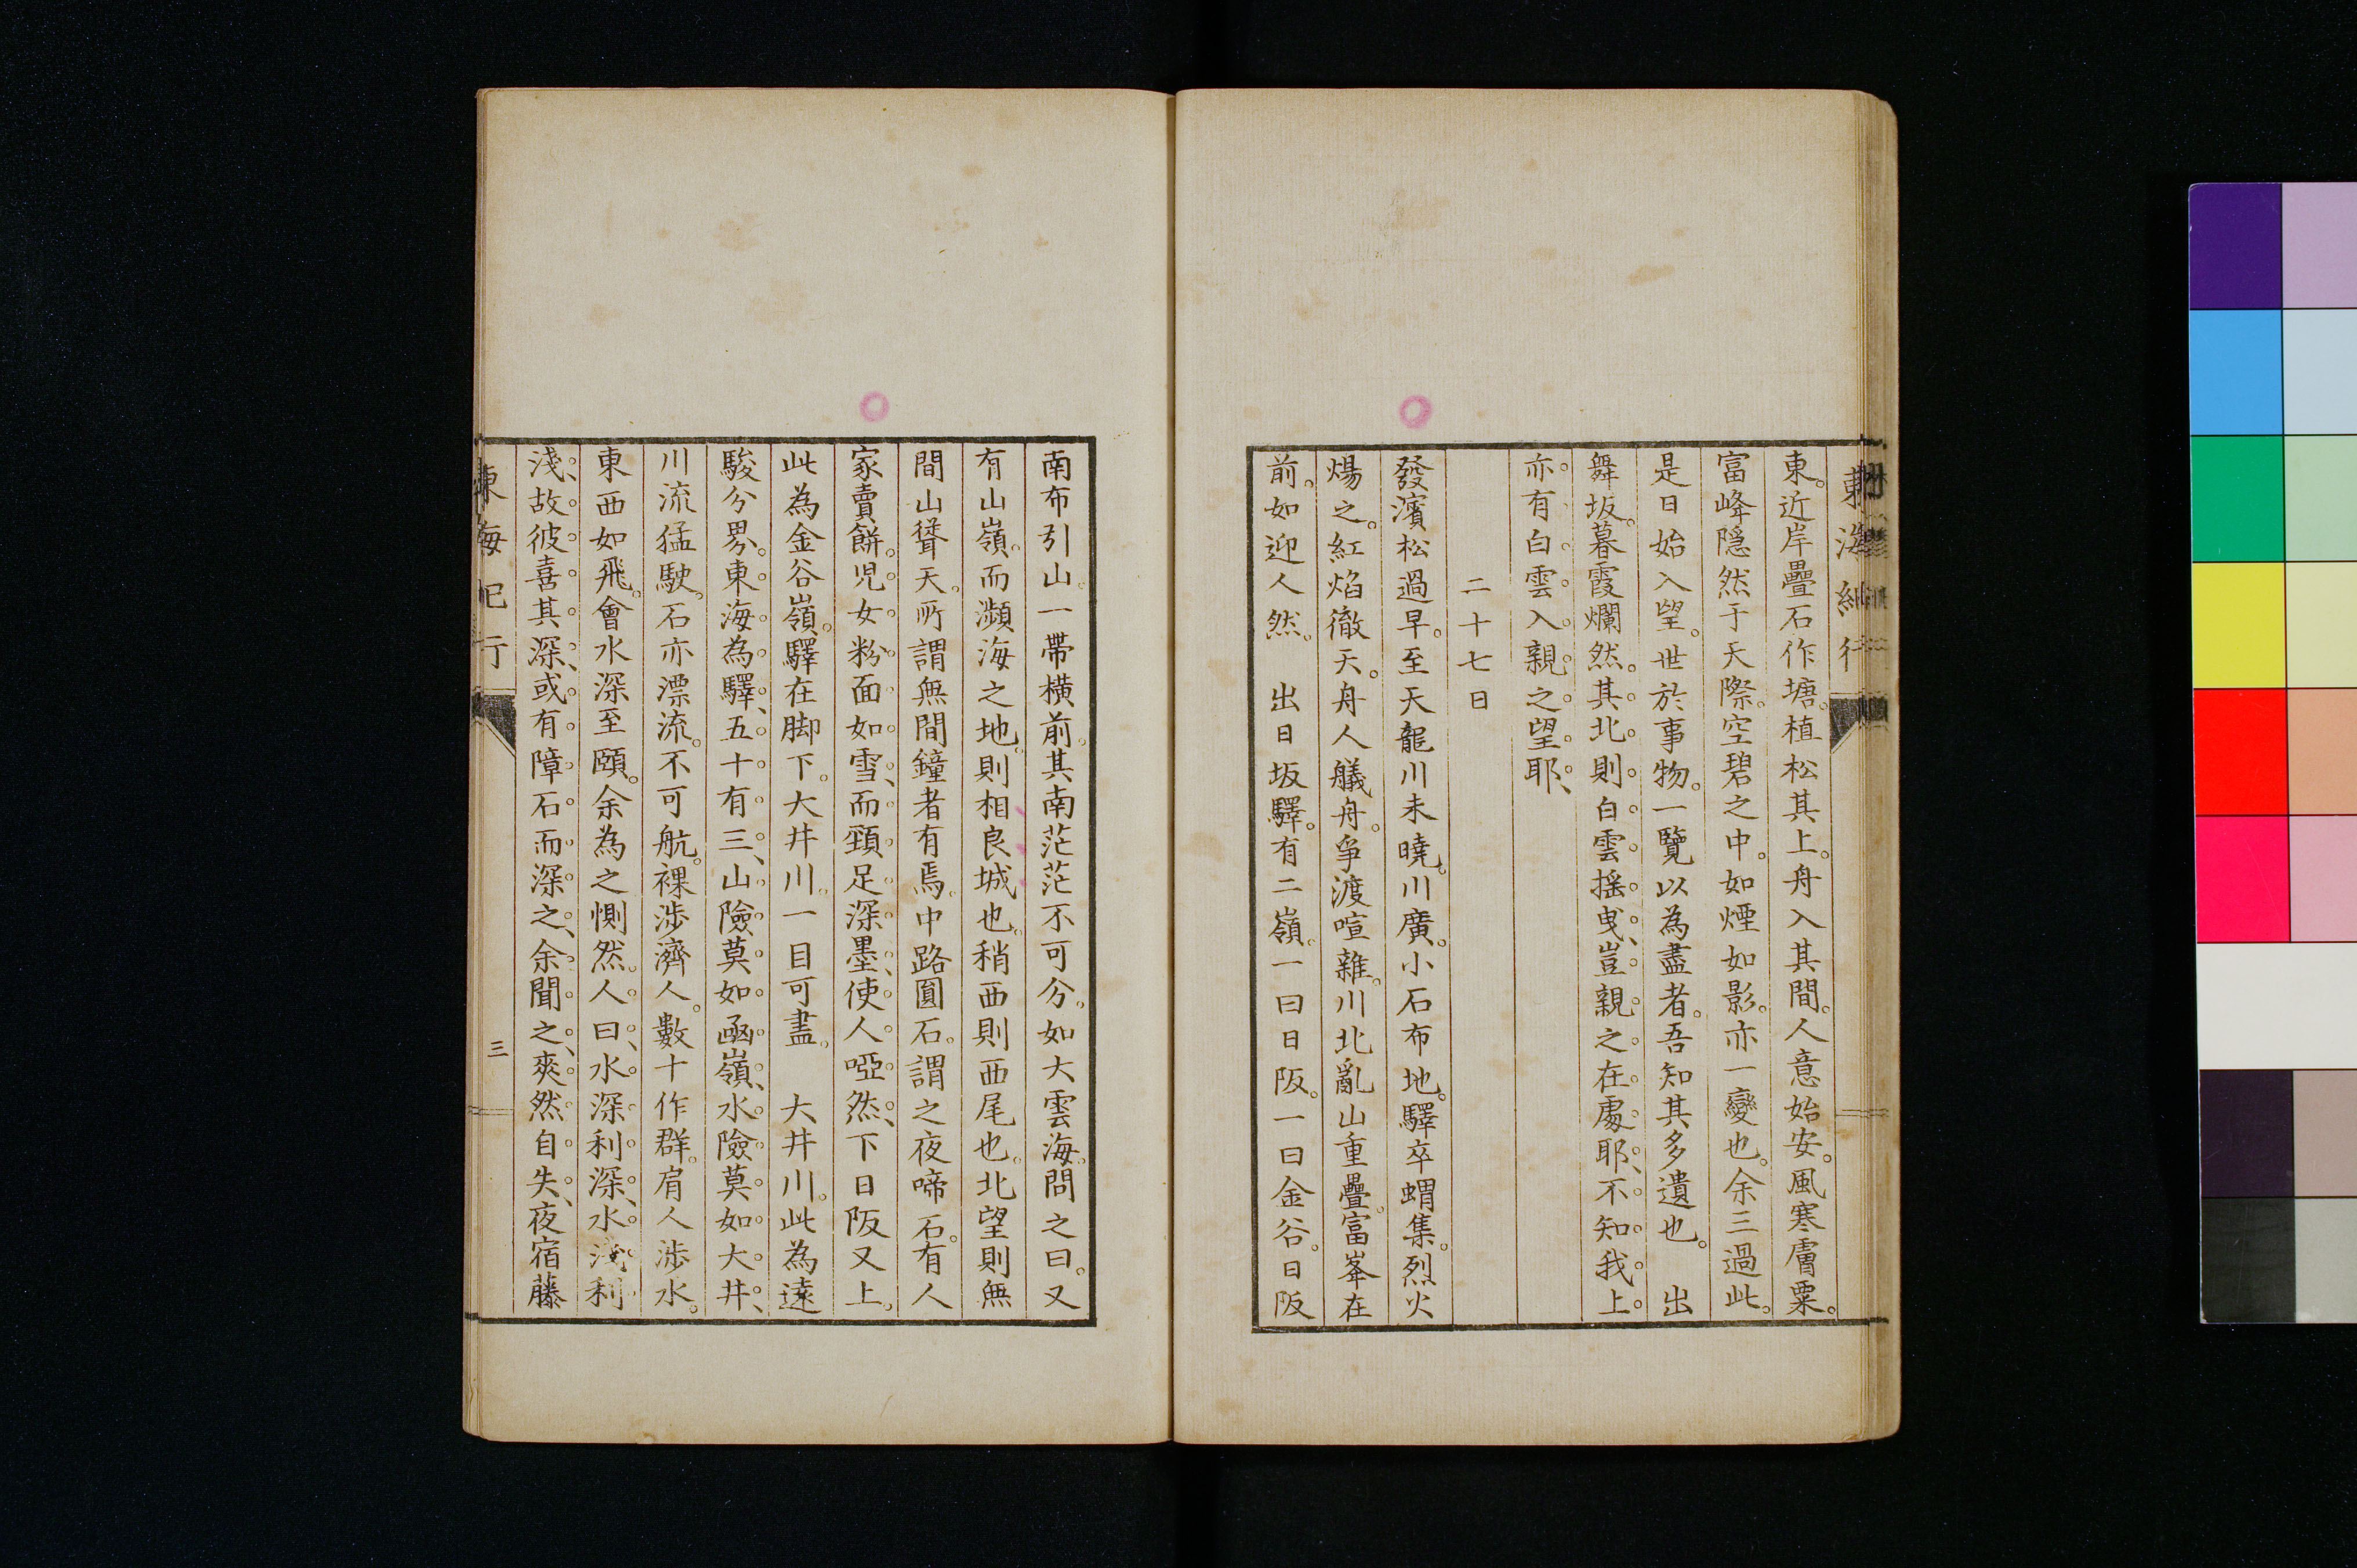 東海紀行
東。近岸疊石作塘。植松其上。舟入其間。人意始安。風寒膚粟。
富峰隠然于天際。空碧之中。如煙如影。亦一變也。余三過此。
是日始入望。世於事物。一覽以為盡者。吾知其多遺也。　出
舞坂。暮霞爛然。其北則白雲搖曳、豈親之在處耶、不知我上
亦有白雲入親之望耶、
二十七日
發濱松過早。至天龍川未曉。川廣。小石布地。驛卒蝟集。烈火
煬之。紅焰徹天。舟人艤舟。爭渡喧雜。川北亂山重疊。富峯在
前。如迎人然。　出日坂驛。有二嶺。一曰日阪。一曰金谷。日阪
南布引山。一帶橫前。其南茫茫不可分。如大雲海。問之曰。又
有山嶺。而瀕海之地。則相良城也。稍西則西尾也。北望則無
間山聳天。所謂無間鐘者有焉。中路圓石。謂之夜啼石。有人
家賣餅。児女粉面如雪、而頸足深墨、使人啞然、下日阪又上。
此為金谷嶺。驛在脚下。大井川。一目可盡。　大井川。此為遠
駿分界。東海為驛、五十有三、山險莫如凾嶺、水險莫如大井、
川流猛駛。石亦漂流。不可航。裸涉濟人。數十作群。肩人涉水。
東西如飛。會水深至頤。余為之惻然。人曰、水深利深、水淺利
淺、故彼喜其深、或有障石而深之、余聞之、爽然自失、夜宿藤
東海紀行
三